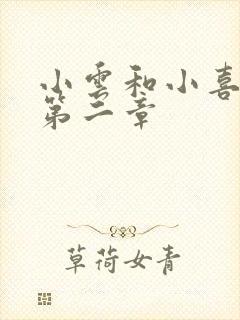 小雲和小喜
第二章
草荷女青